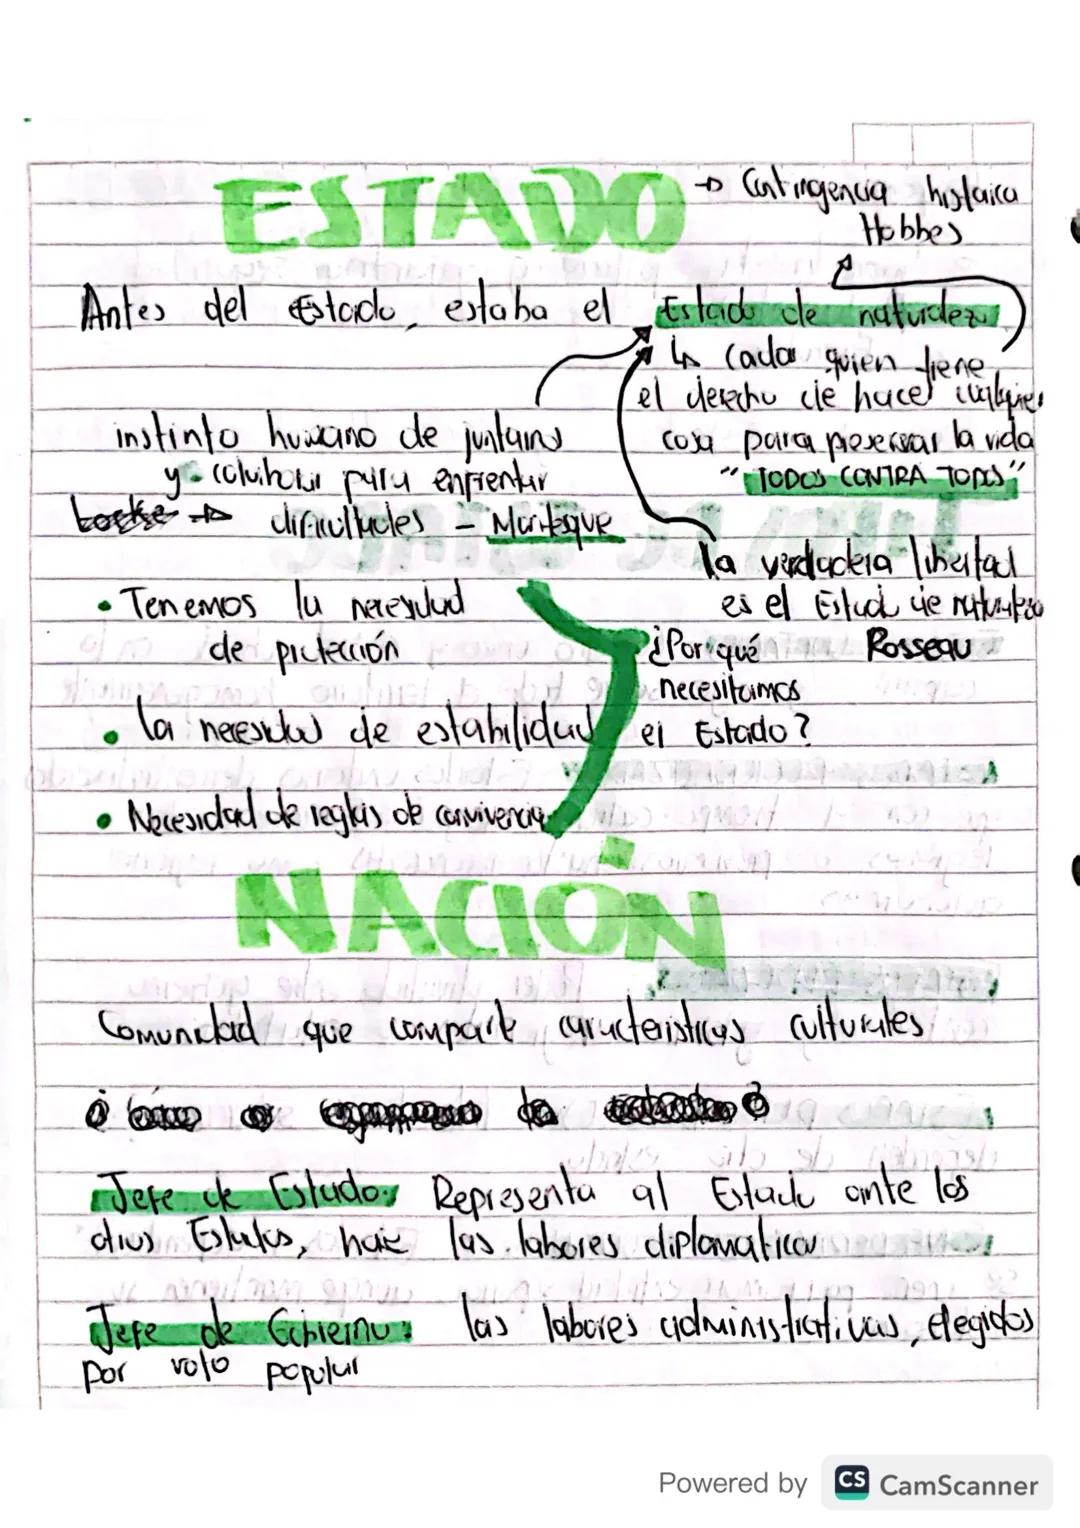 ESTADO → Contingencia histórica
Hobbes
Antes del Estado, estaba el Estado de naturaleza
↳ Cada quien tiene
el derecho de hacer cualquier
cosa para preservar la vida
"TODOS CONTRA TODOS"
instinto humano de juntarnos
y colaborar para enfrentar
Locke → dificultades - Montesque
la verdadera libertad
es el Estado de naturaleza
Rosseau
• Tenemos la necesidad
de protección
• la necesidad de estabilidad
• Necesidad de reglas de convivencia
¿Por qué
necesitamos
el Estado?
NACIÓN
Comunidad que comparte características culturales
Jefe de Estado: Representa al Estado ante los
otros Estados, hace las labores diplomaticas
Jefe de Gobierno: las labores administrativas, elegidos
por voto popular
Powered by CS CamScanner